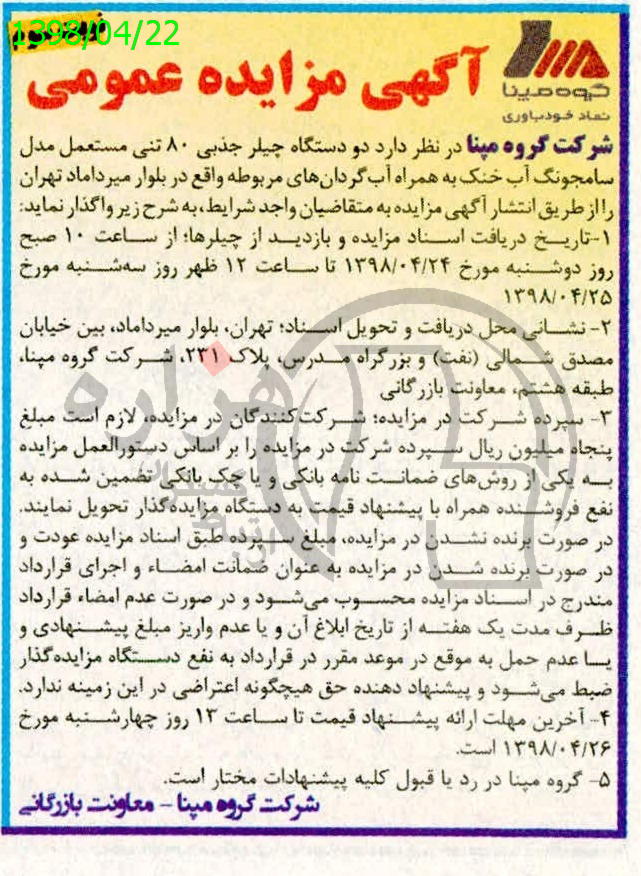 1398/04/22
گروه مپنا
نماد خودباوری
آگهی مزایده عمومی
شرکت گروه مپنا در نظر دارد دو دستگاه چیلر جذبی ۸۰ تنی مستعمل مدل
سامجونگ آب خنک به همراه آب گردان‌های مربوطه واقع در بلوار میرداماد تهران
را از طریق انتشار آگهی مزایده به متقاضیان واجد شرایط، به شرح زیر واگذار نماید:
۱-تاریخ دریافت اسناد مزایده و بازدید از چیلرها؛ از ساعت ۱۰ صبح
روز دوشنبه مورخ ۱۳۹۸/۰۴/۲۴ تا ساعت ۱۲ ظهر روز سه‌شنبه مورخ
۱۳۹۸/۰۴/۲۵
۲- نشانی محل دریافت و تحویل اسناد؛ تهران، بلوار میرداماد، بین خیابان
مصدق شمالی (نفت) و بزرگراه مدرس، پلاک ۲۳۱، شرکت گروه مپنا،
طبقه هشتم، معاونت بازرگانی
۳- سپرده شرکت در مزایده؛ شرکت‌کنندگان در مزایده، لازم است مبلغ
پنجاه میلیون ریال سپرده شرکت در مزایده را بر اساس دستورالعمل مزایده
به یکی از روش‌های ضمانت نامه بانکی و یا چک بانکی تضمین شده به
نفع فروشنده همراه با پیشنهاد قیمت به دستگاه مزایده‌گذار تحویل نمایند.
در صورت برنده نشدن در مزایده، مبلغ سپرده طبق اسناد مزایده عودت و
در صورت برنده شدن در مزایده به عنوان ضمانت امضاء و اجرای قرارداد
مندرج در اسناد مزایده محسوب می‌شود و در صورت عدم امضاء قرارداد
ظرف مدت یک هفته از تاریخ ابلاغ آن و یا عدم واریز مبلغ پیشنهادی و
یا عدم حمل به موقع در موعد مقرر در قرارداد به نفع دستگاه مزایده‌گذار
ضبط می‌شود و پیشنهاد دهنده حق هیچگونه اعتراضی در این زمینه ندارد.
۴- آخرین مهلت ارائه پیشنهاد قیمت تا ساعت ۱۳ روز چهارشنبه مورخ
۱۳۹۸/۰۴/۲۶ است.
۵- گروه مپنا در رد یا قبول کلیه پیشنهادات مختار است.
شرکت گروه مپنا - معاونت بازرگانی
هزاره